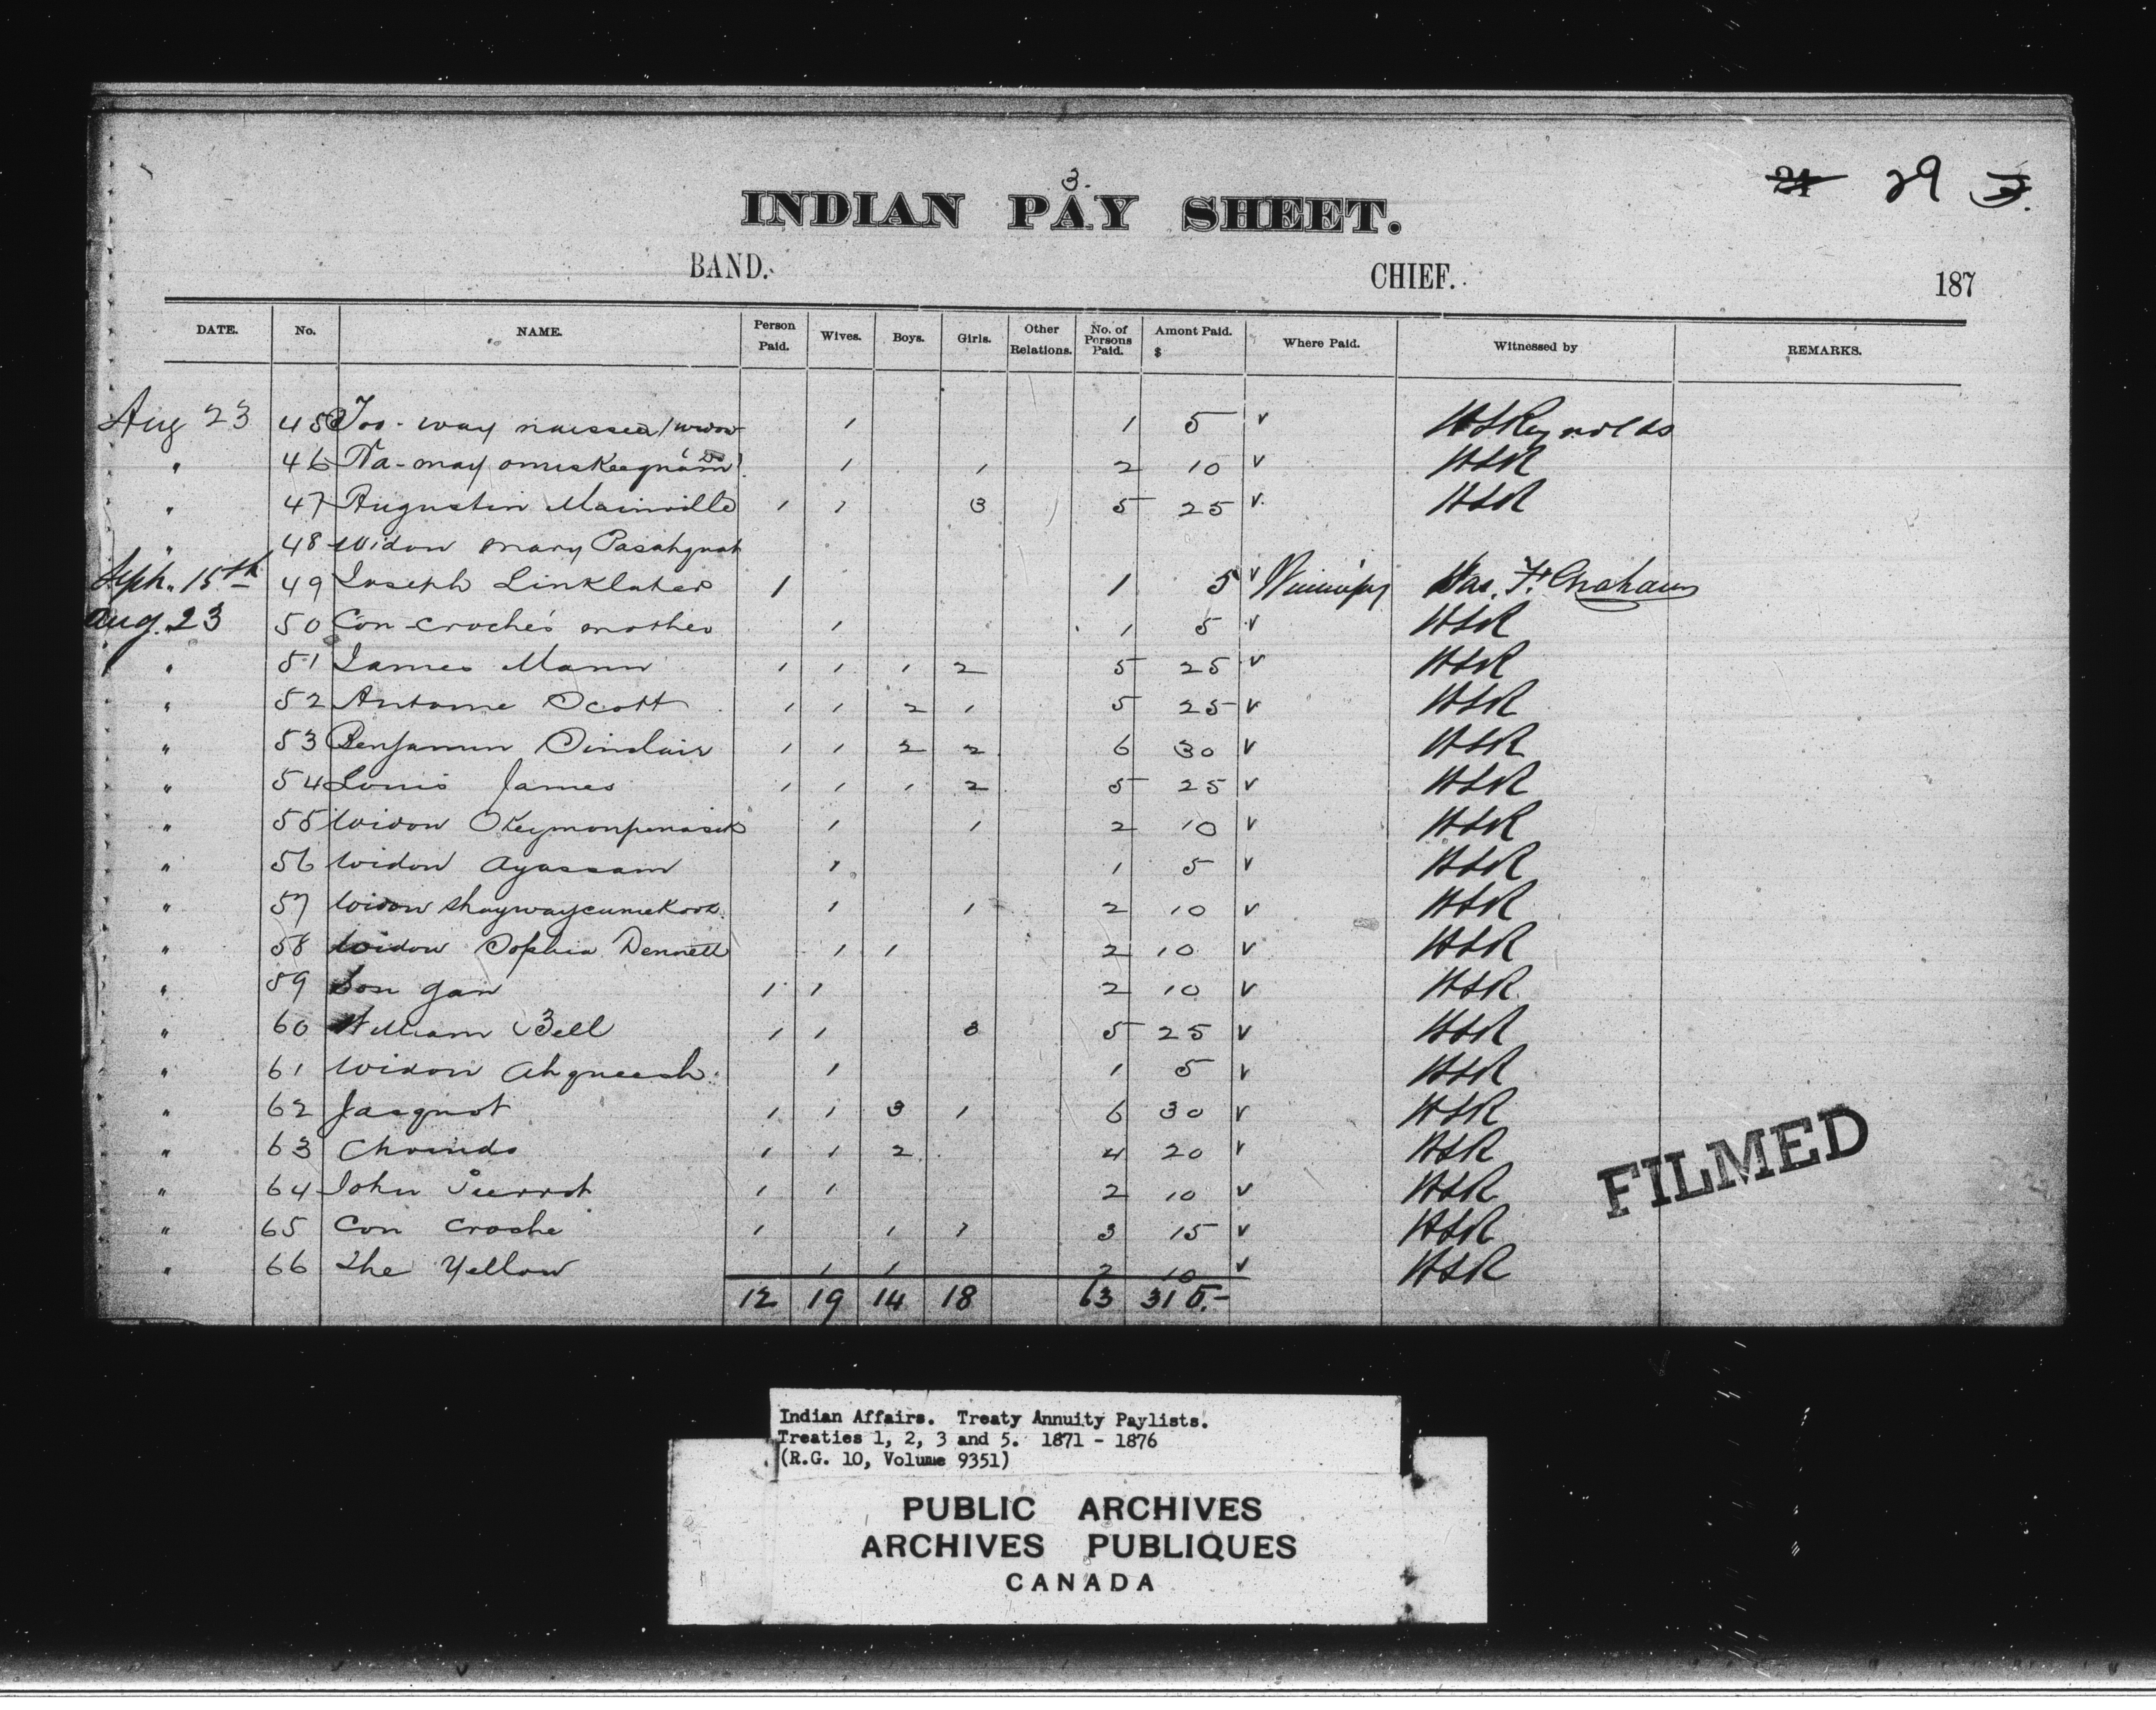 3.
21 29
INDIAN PAY SHEET.
BAND. CHIEF. 187
DATE. No. NAME. Person Paid. Wives. Boys. Girls. Other Relations. No. of Persons Paid. Amont Paid. $ Where Paid. Witnessed by REMARKS.
Aug 23 45 1 1 5 v HSReynolds
" 46 1 1 2 10 v HSR
" 47 Augustin Mainville 1 1 3 5 25 v. HSR
" 48 Widow Mary Pasahquah
Sept. 15th 49 Joseph Linklater 1 1 5 v Winnipeg Jas. F. Graham
Aug. 23 50 Con-croche's mother 1 1 5 v HSR
" 51 James Mann 1 1 1 2 5 25 v HSR
" 52 Antoine Scott 1 1 2 1 5 25 v HSR
" 53 Benjamin Sinclair 1 1 2 2 6 30 v HSR
" 54 Louis James 1 1 1 2 5 25 v HSR
" 55 Widow 1 1 2 10 v HSR
" 56 Widow Ayassam 1 1 5 v HSR
" 57 Widow 1 1 2 10 v HSR
" 58 Widow Sophia Dennett 1 1 2 10 v HSR
" 59 Son gan 1 1 2 10 v HSR
" 60 William Bell 1 1 3 5 25 v HSR
" 61 Widow Ahqueesh 1 1 5 v HSR
" 62 Jasquot 1 1 3 1 6 30 v HSR
" 63 1 1 2 4 20 v HSR
" 64 John Pierrot 1 1 2 10 v HSR
" 65 Con Croche 1 1 1 3 15 v HSR
" 66 The Yellow 1 1 2 10 v HSR
12 19 14 18 63 315.-
FILMED
Indian Affairs. Treaty Annuity Paylists.
Treaties 1, 2, 3 and 5. 1871 - 1876
(R.G. 10, Volume 9351)
PUBLIC ARCHIVES
ARCHIVES PUBLIQUES
CANADA